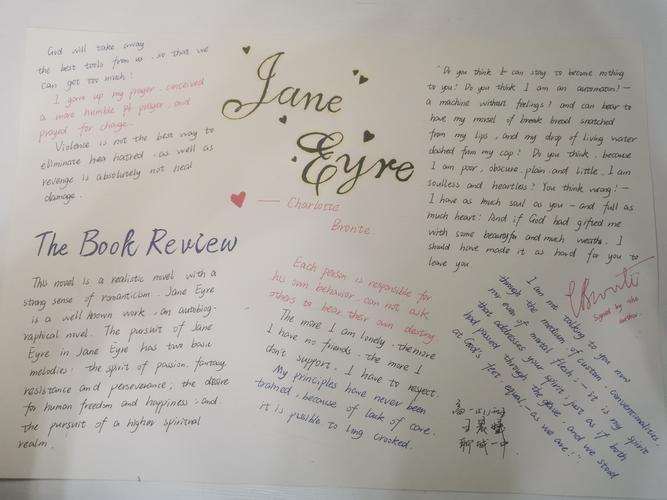 God will take away
the best tools from us. so that we
can get too much!
I gave up my prayer. conceived
a more humble pl prayer. and
prayed for change.
Violence is not the best way to
eliminate hea hatred. as well as
revenge is absolutely not heal
damage.
Jane
Eyre
— Charlotte
Bronte
"Do you think I can stay to become nothing
to you? Do you think I am an automaton?—
a machine without feelings? and can bear to
have my morsel of break bread snatched
from my lips, and my drop of living water
dashed from my cup? Do you think, because
I am poor, obscure, plain and little, I am
soulless and heartless? You think wrong!—
I have as much soul as you — and full as
much heart! And if God had gifted me
with some beauty and much wealth. I
should have made it as hard for you to
leave you
The Book Review
This novel is a realistic novel with a
strong sense of romanticism. Jane Eyre
is a well known work. an autobiog-
raphical novel. The pursuit of Jane
Eyre in Jane Eyre has two basic
melodies: the spirit of passion, fantasy,
resistance and perseverance; the desire
for human freedom and happiness: and.
the pursuit of a higher spiritual
realm.
Each person is responsible for
his own behavior. can not ask
others to bear their own destiny.
The more I am lonely. the more
I have no friends. the more I
don't support. I have to respect.
My principles have never been
trained. because of lack of care.
it is possible to long crooked.
CBronte
Signed by the
author
I am me talking to you now
through the medium of custom, conventionalities,
nor even of mortal flesh:— it is my spirit
that addresses your spirit; just as if both
had passed through the grave, and we stood
at God's feet, equal,— as we are!"
高一
王
聊城一中